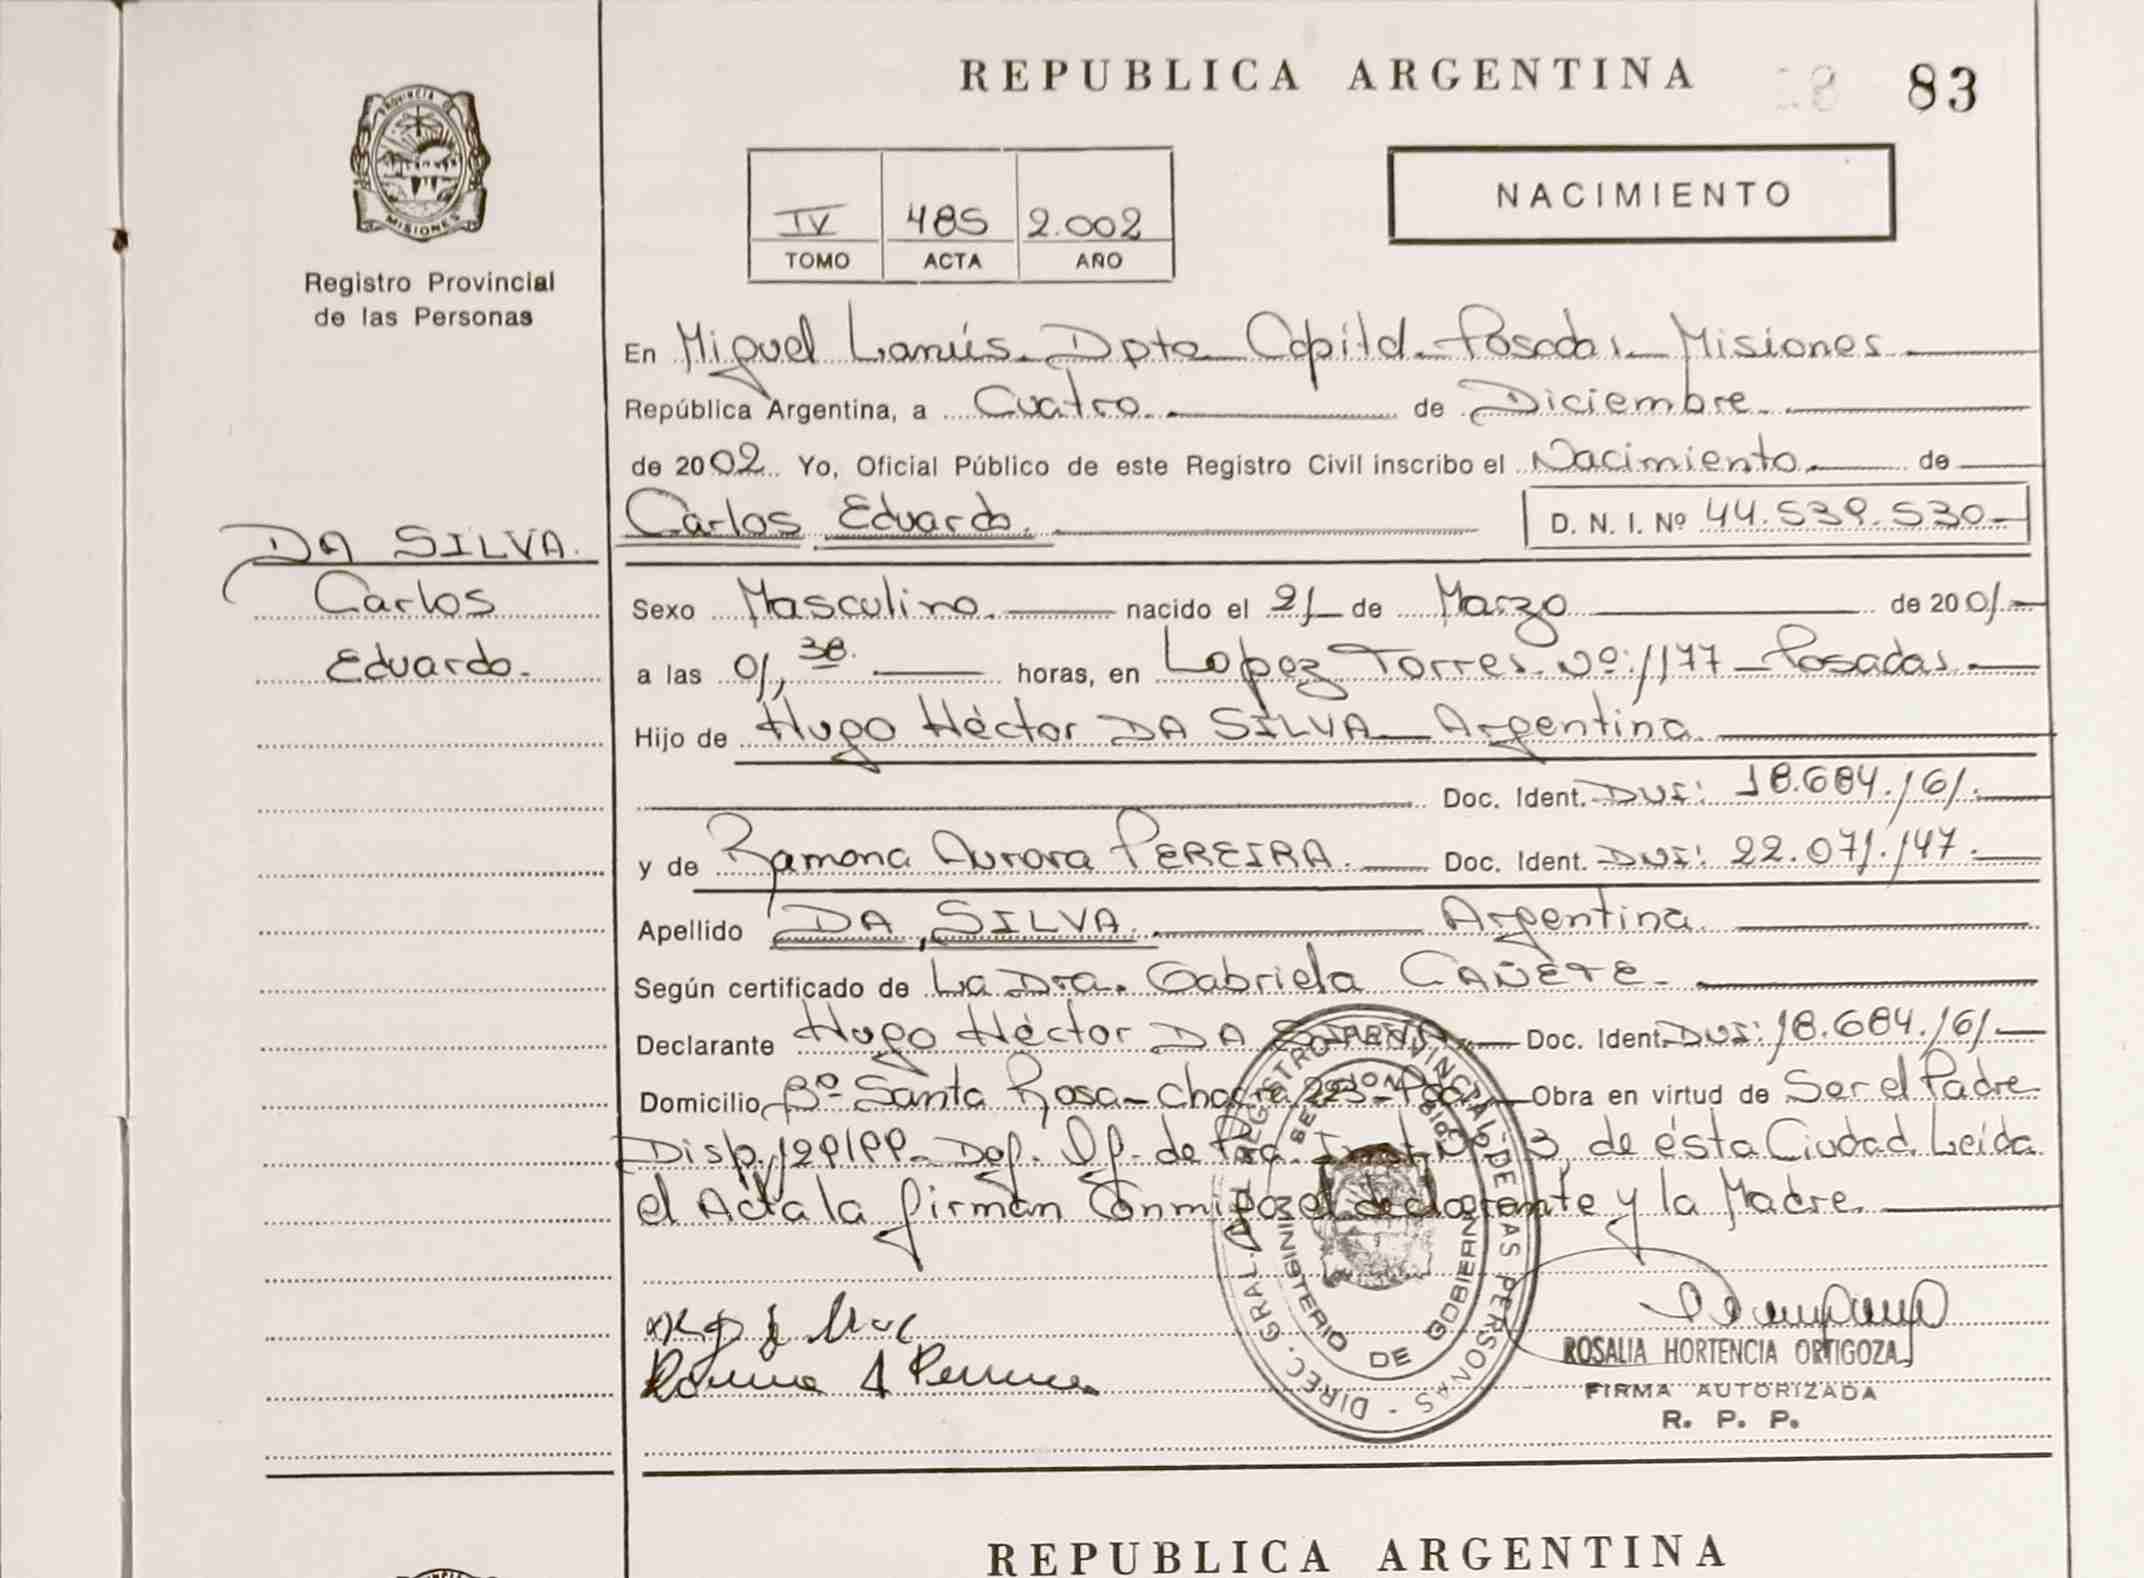 REPUBLICA ARGENTINA
83
PROVINCIA DE
MISIONES
Registro Provincial
de las Personas
NACIMIENTO
IV 485 2.002
TOMO ACTA AÑO
En Miguel Lanús - Dpto Capital - Posadas - Misiones
República Argentina, a Cuatro de Diciembre
de 2002 Yo, Oficial Público de este Registro Civil inscribo el Nacimiento de
Carlos Eduardo. D. N. I. Nº 44.539.530-
DA SILVA.
Carlos
Eduardo.
Sexo Masculino. nacido el 21 de Marzo de 2001
a las 01,38. horas, en Lopez Torres Nº: 1177 - Posadas.
Hijo de Hugo Héctor DA SILVA - Argentina
Doc. Ident. DNI: 18.684.161.
y de Ramona Aurora PEREIRA. Doc. Ident. DNI: 22.071.147.
Apellido DA SILVA. Argentina.
Según certificado de La Dra. Gabriela CAÑETE.
Declarante Hugo Héctor DA SILVA Doc. Ident. DNI: 18.684.161
Domicilio Bº Santa Rosa - Chacra 223 - Obra en virtud de Ser el Padre
Disp. Def. Of. de 3, de ésta Ciudad. Leída
el Acta la firman Conmigo el declarante y la Madre.
DIREC. GRAL. DEL REGISTRO PROVINCIAL DE LAS PERSONAS
MINISTERIO DE GOBIERNO
ROSALIA HORTENCIA ORTIGOZA
FIRMA AUTORIZADA
R. P. P.
REPUBLICA ARGENTINA